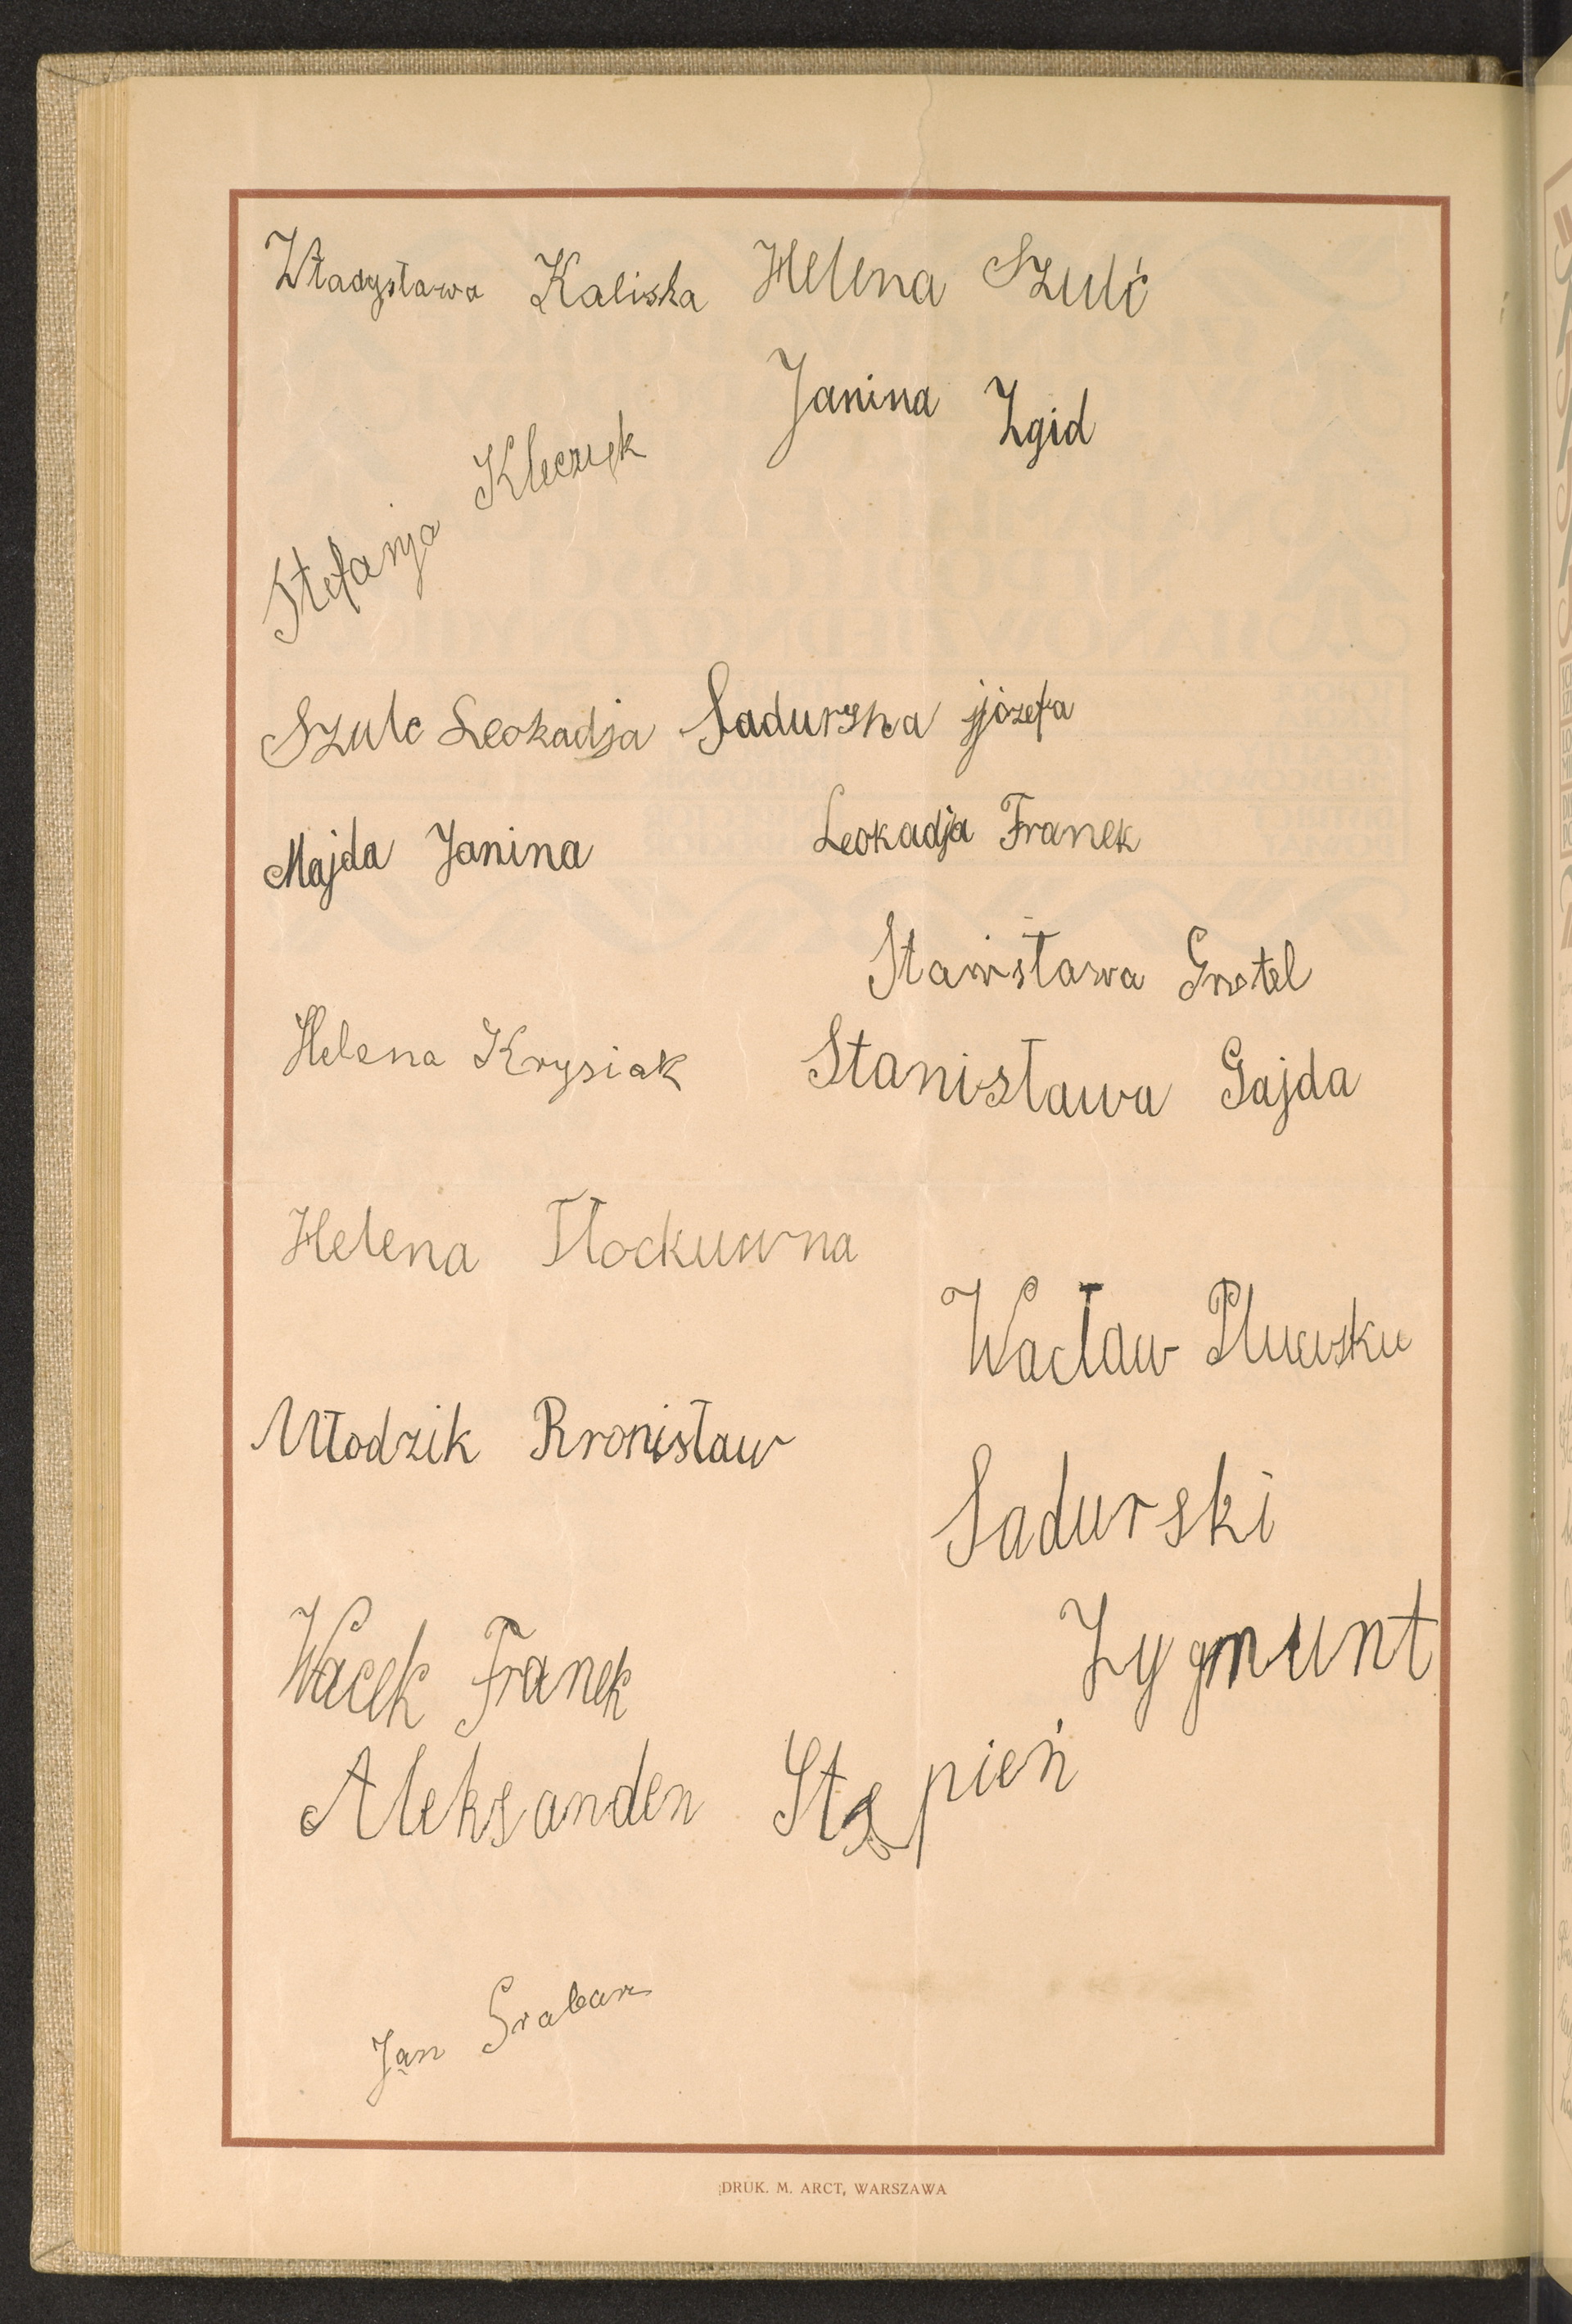 Władysława Kaliska Helena Szulć
Janina Zgid
Stefanja Kleczek
Szulc Leokadja Sadurska jjózefa
Majda Janina Leokadja Franek
Stanisława Grotel
Helena Krysiak Stanisława Gajda
Helena Tłockuwna
Wacław
Młodzik Bronisław
Sadurski
Zygmunt
Wacek Franek
Aleksander Stępień
Jan Graban
DRUK. M. ARCT, WARSZAWA